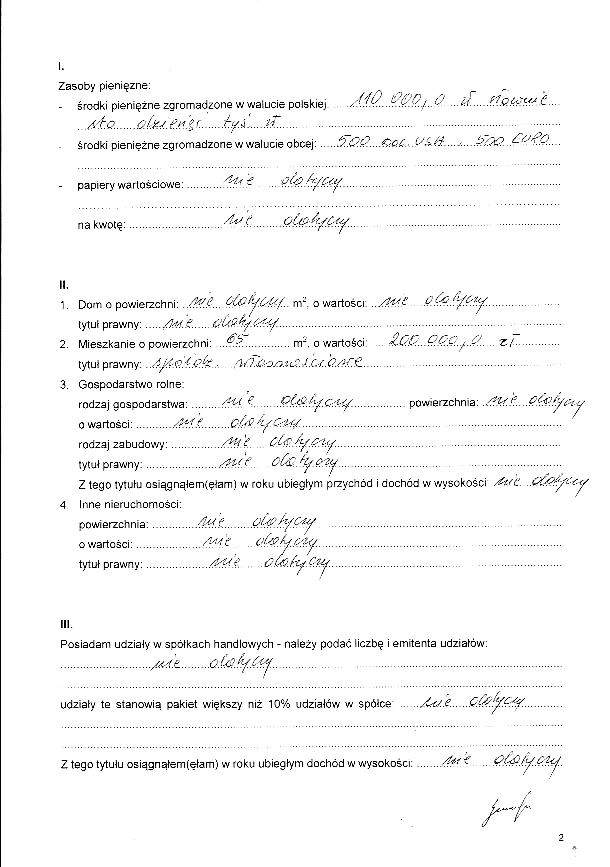 I.
Zasoby pieniężne:
- środki pieniężne zgromadzone w walucie polskiej: 110 000,0 zł słownie
sto dziesięć tyś zł
- środki pieniężne zgromadzone w walucie obcej: 500 DOL. USA, 500 EURO
- papiery wartościowe: nie dotyczy
na kwotę: nie dotyczy
II.
1. Dom o powierzchni: nie dotyczy m², o wartości: nie dotyczy
tytuł prawny: nie dotyczy
2. Mieszkanie o powierzchni: 65 m², o wartości: 200 000,0 zł
tytuł prawny: spółdz. własnościowe
3. Gospodarstwo rolne:
rodzaj gospodarstwa: nie dotyczy powierzchnia: nie dotyczy
o wartości: nie dotyczy
rodzaj zabudowy: nie dotyczy
tytuł prawny: nie dotyczy
Z tego tytułu osiągnąłem(ęłam) w roku ubiegłym przychód i dochód w wysokości: nie dotyczy
4. Inne nieruchomości:
powierzchnia: nie dotyczy
o wartości: nie dotyczy
tytuł prawny: nie dotyczy
III.
Posiadam udziały w spółkach handlowych - należy podać liczbę i emitenta udziałów:
nie dotyczy
udziały te stanowią pakiet większy niż 10% udziałów w spółce: nie dotyczy
Z tego tytułu osiągnąłem(ęłam) w roku ubiegłym dochód w wysokości: nie dotyczy
2